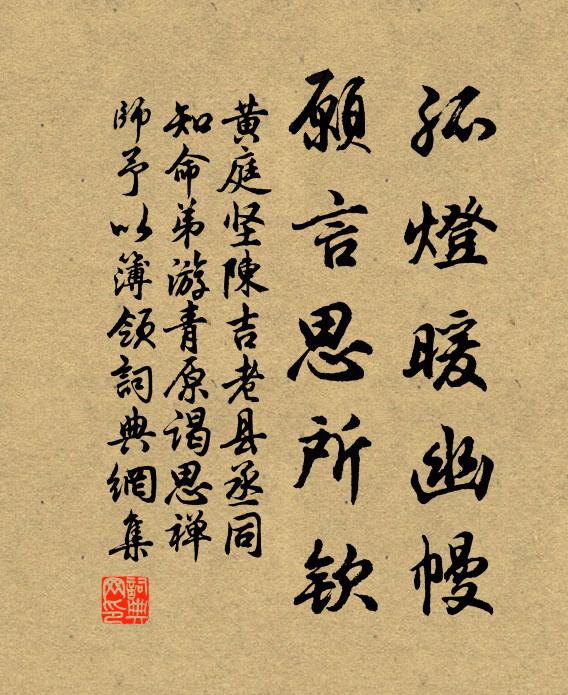 孤燈暖幽幔
願言思所欽
黄庭坚陳吉老县丞同
知命弟游青原谒思禅
師予以簿领詞典網集
詞典网印